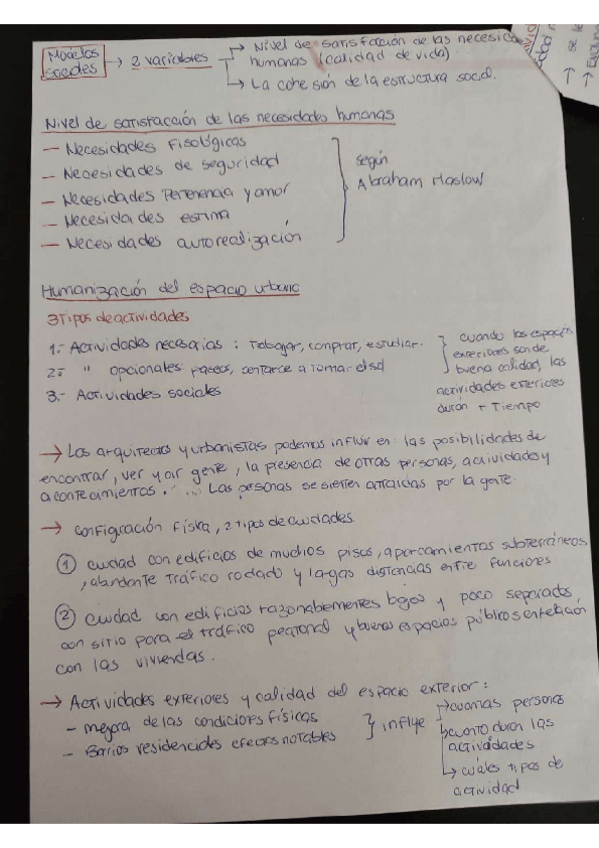 Modelos → 2 variables → Nivel de satisfacción de las necesid
Sociales humanas (calidad de vida)
↳ La cohesión de la estructura social.
Nivel de satisfacción de las necesidades humanas
— Necesidades Fisológicas
— Necesidades de seguridad
— Necesidades Pertenencia y amor
— Necesidades estima
— Necesidades autorealización
según
Abraham Maslow
Humanización del espacio urbano
3 Tipos de actividades
1.- Actividades necesarias : Trabajar, comprar, estudiar.
2.- " opcionales: paseos, sentarce a tomar el sol
3.- Actividades sociales
cuando los espacios
exteriores son de
buena calidad, las
actividades exteriores
duran + Tiempo
→ Los arquitectos y urbanistas podemos influir en: las posibilidades de
encontrar, ver y oir gente, la presencia de otras personas, actividades y
acontecimientos. "... Las personas se sienten atraidas por la gente.
→ Configuración física, 2 tipos de ciudades
① ciudad con edificios de muchos pisos, aparcamientos subterráneos
, abundante tráfico rodado y largas distancias entre funciones
② ciudad con edificios razonablemente bajos y poco separados,
con sitio para el tráfico peatonal y buenos espacios públicos en relación
con las viviendas.
→ Actividades exteriores y calidad del espacio exterior:
- mejora de las condiciones físicas
- Barrios residenciales efectos notables
} influye
→ cuantas personas
↳ cuanto duran las
actividades
↳ cuáles tipos de
actividad